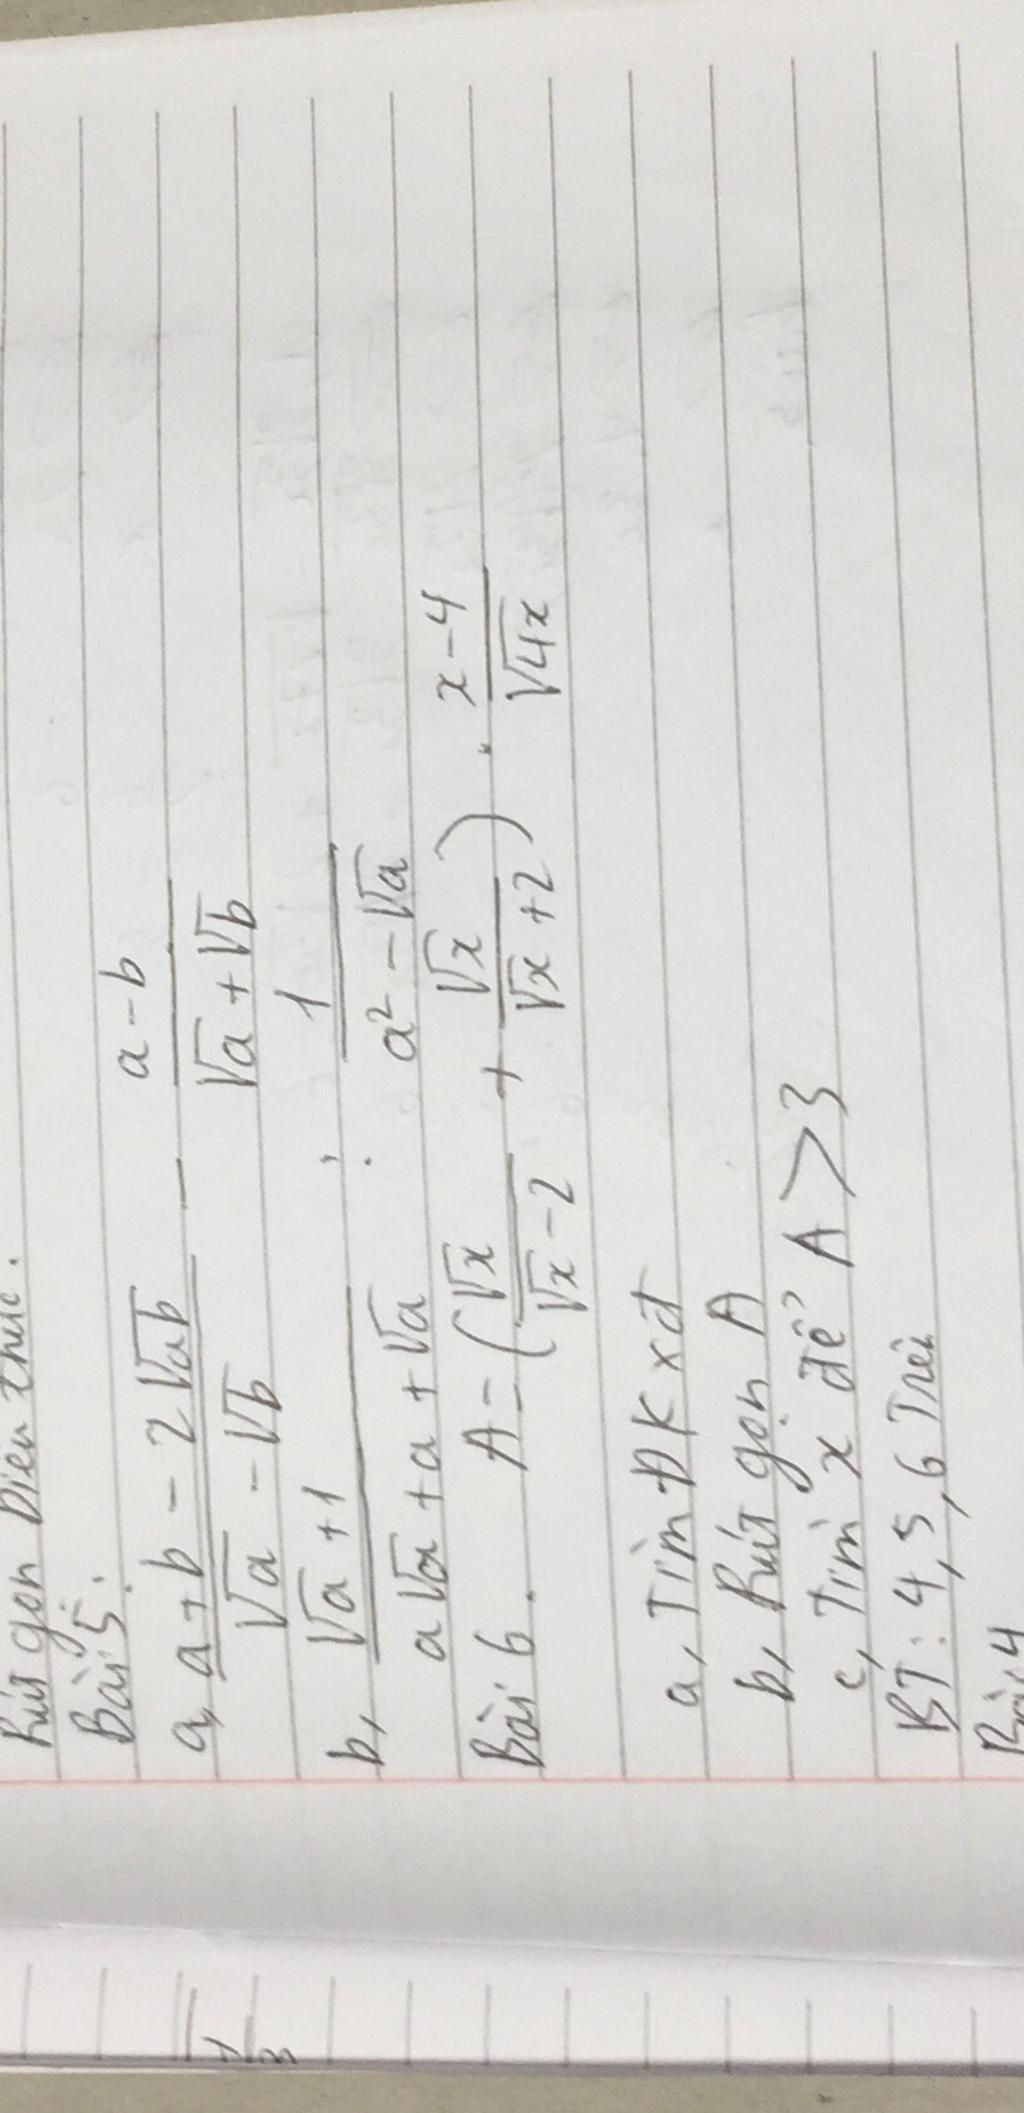 Rút gọn biểu thức.
Bài 5:
a, (a + b - 2√ab)/(√a - √b) - (a - b)/(√a + √b)
b, (√a + 1)/(a√a + a + √a) : 1/(a² - √a)
Bài 6. A = (√x/(√x - 2) + √x/(√x + 2)) . (x - 4)/√4x
a, Tìm ĐKxđ
b, Rút gọn A
c, Tìm x để A > 3
BT: 4, 5, 6 Trên
Bài 4